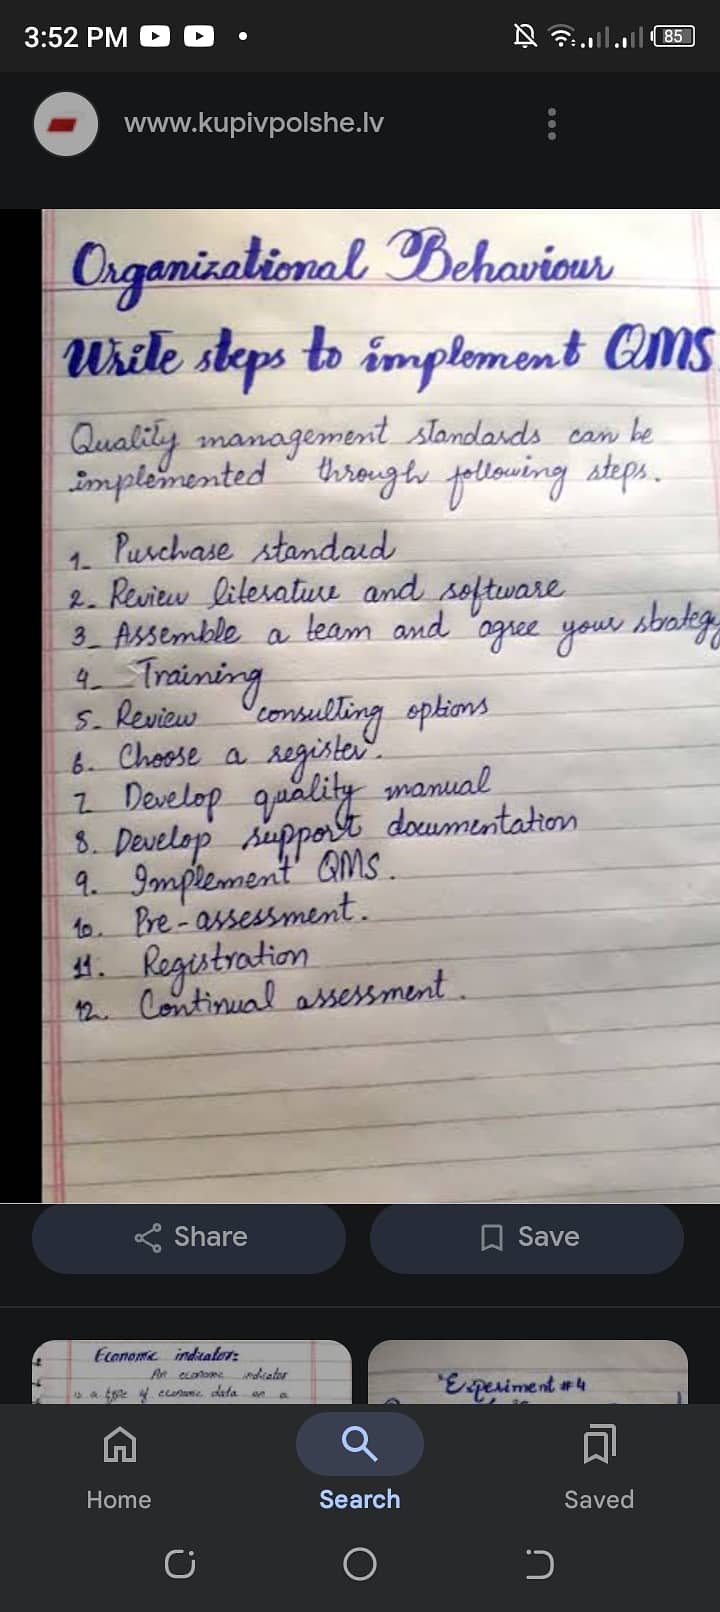 3:52 PM
85
www.kupivpolshe.lv
Organizational Behaviour
Write steps to implement QMS
Quality management standards can be
implemented through following steps.
1- Purchase standard
2- Review literature and software
3- Assemble a team and agree your strategy
4- Training
5- Review consulting options
6. Choose a register.
7 Develop quality manual
8. Develop support documentation
9. Implement QMS.
10. Pre-assessment.
11. Registration
12. Continual assessment.
Share
Save
Economic indicator:
An economic indicator
is a type of economic data on a
"Experiment #4
Home
Search
Saved